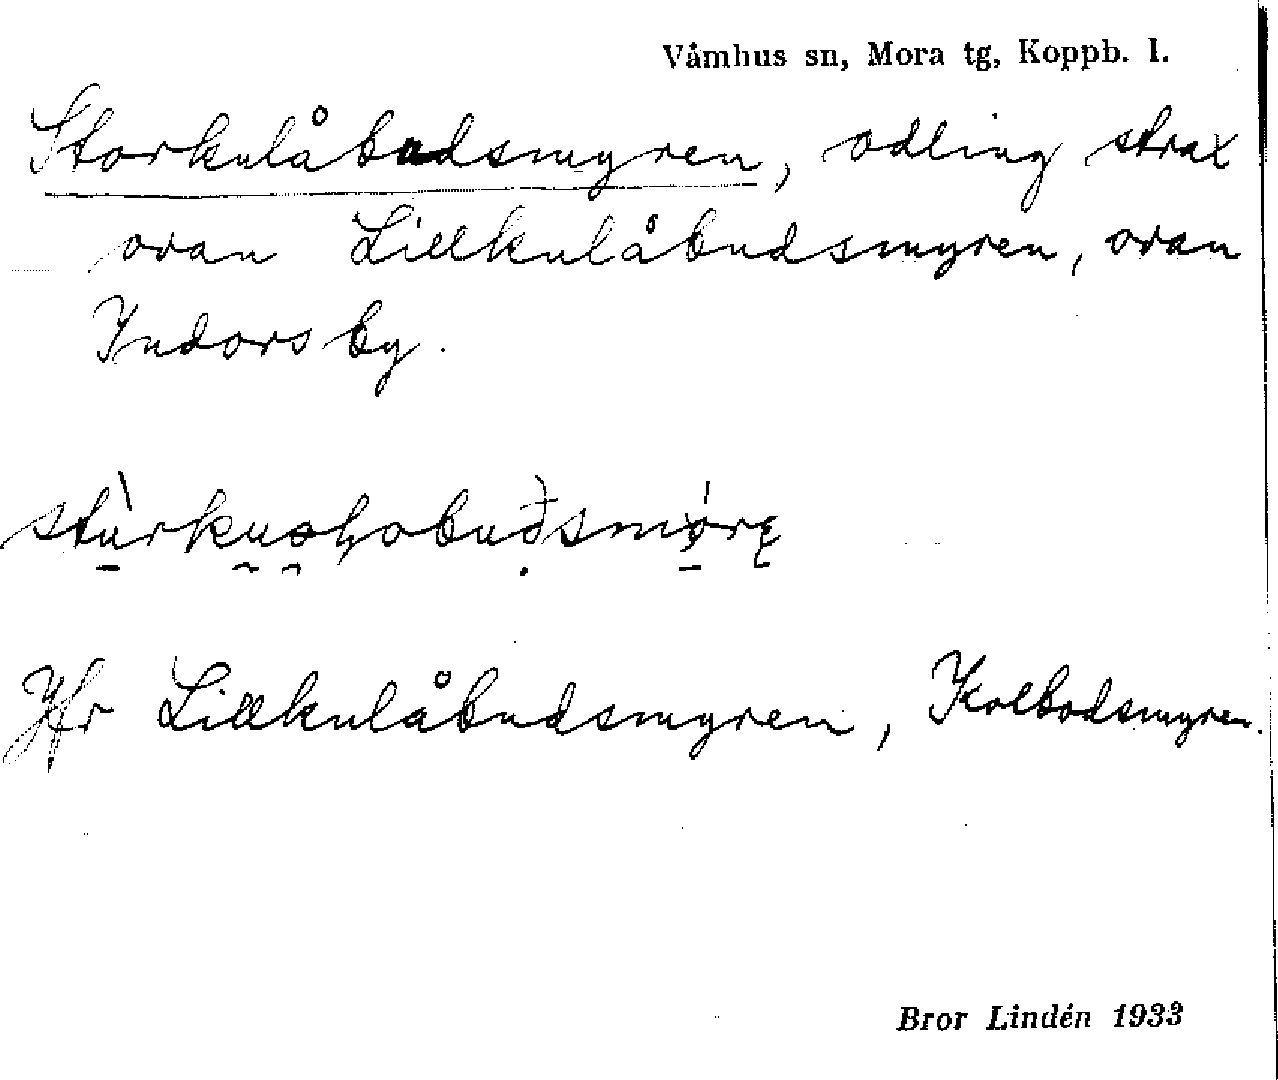 Våmhus sn, Mora tg, Koppb. l.
Storkulåbudsmyren, odling strax
ovan Lillkulåbudsmyren, ovan
Indors by.
Jfr Lillkulåbudsmyren, Kolbodsmyren.
Bror Lindén 1933